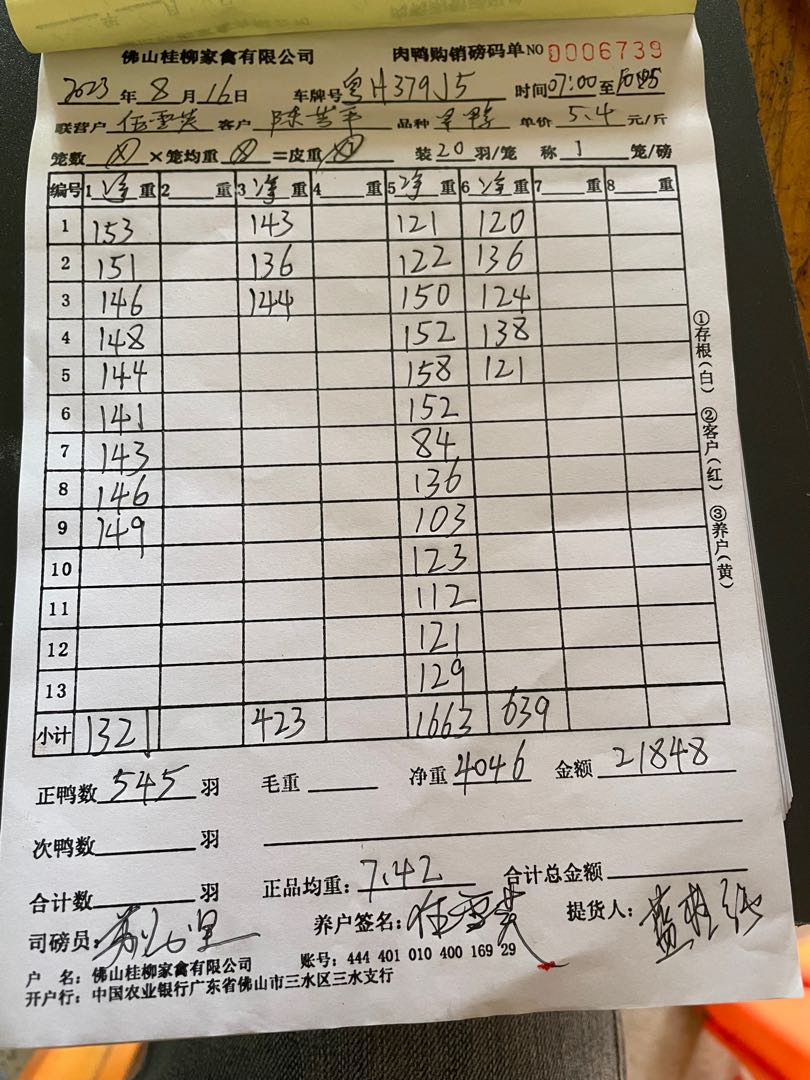 佛山桂柳家禽有限公司 肉鸭购销磅码单 NO 0006739
2023 年 8 月 16 日 车牌号 粤H379J5 时间 07:00 至
联营户 任雪英 客户 陈 平 品种 单价 5.4 元/斤
笼数 × 笼均重 = 皮重 装 20 羽/笼 称 1 笼/磅
编号 1 净 重 2 重 3 净 重 4 重 5 净 重 6 净 重 7 重 8 重
1 153 143 121 120
2 151 136 122 136
3 146 144 150 124
4 148 152 138
5 144 158 121
6 141 152
7 143 84
8 146 136
9 149 103
10 123
11 112
12 121
13 129
小计 1321 423 1663 639
正鸭数 545 羽 毛重 净重 4046 金额 21848
次鸭数 羽
合计数 羽 正品均重: 7.42 合计总金额
司磅员: 养户签名: 任雪英 提货人:
户 名: 佛山桂柳家禽有限公司 账号: 444 401 010 400 169 29
开户行: 中国农业银行广东省佛山市三水区三水支行
①存根(白) ②客户(红) ③养户(黄)